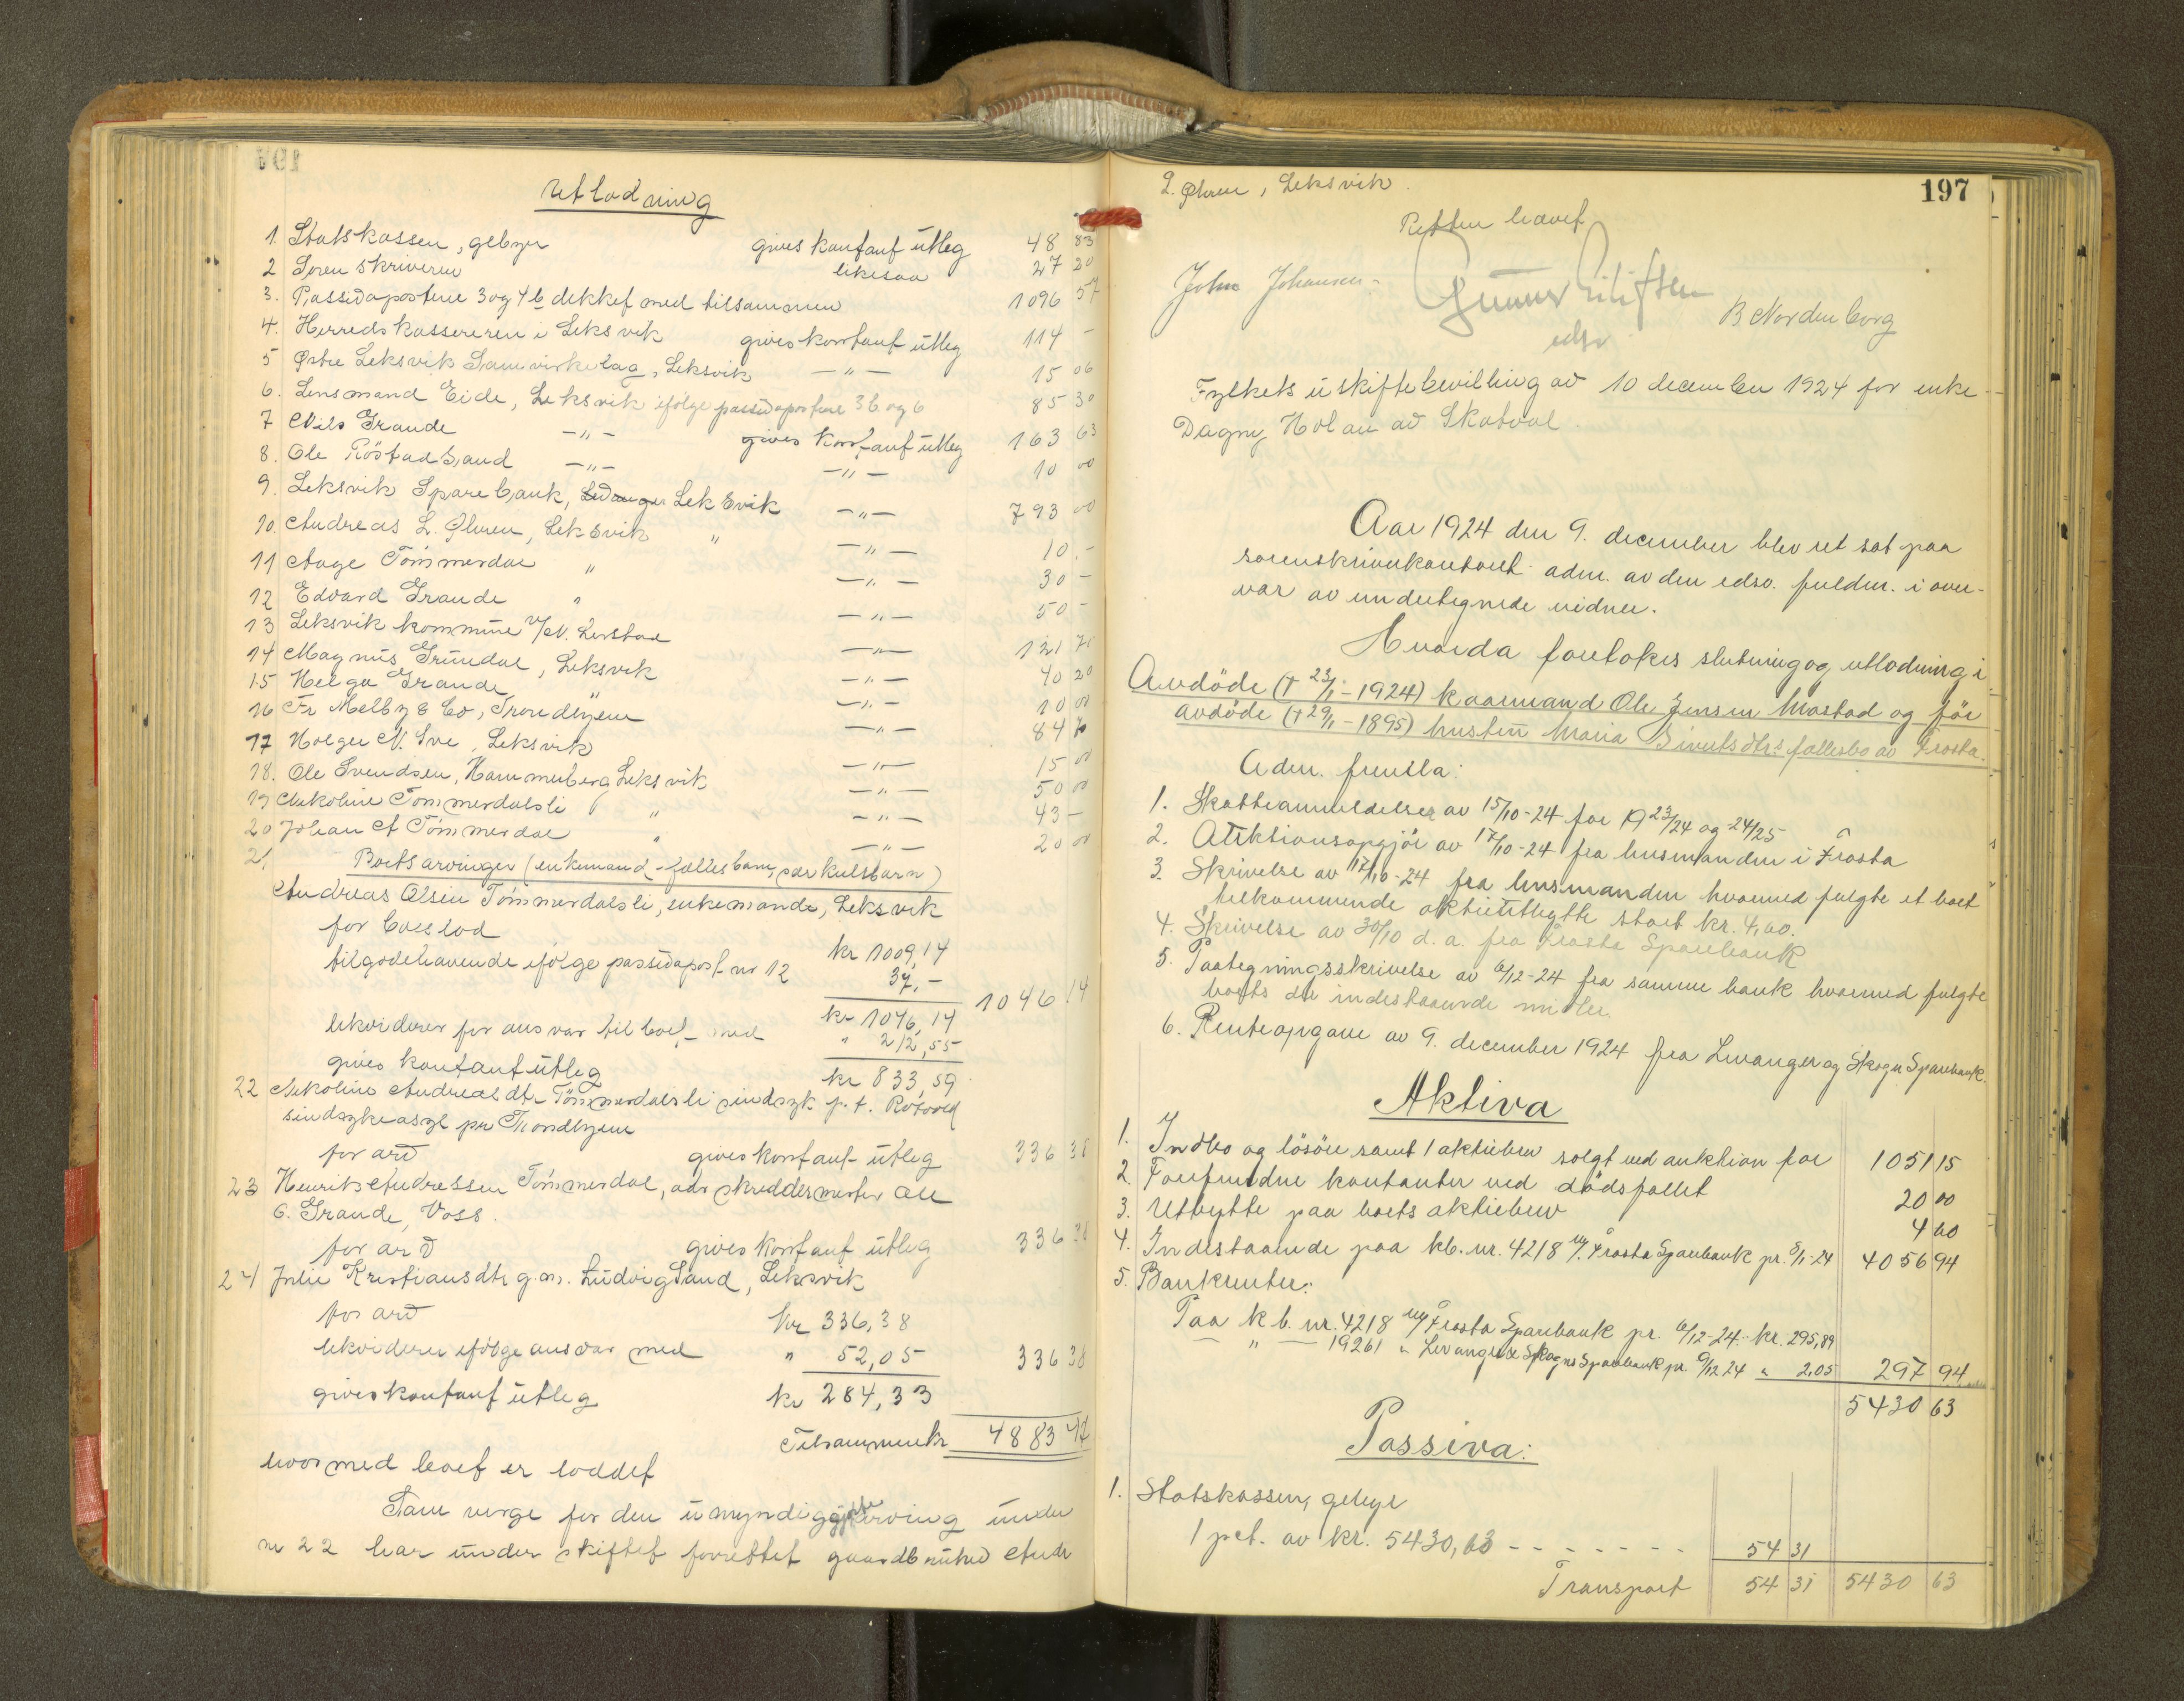 Utlodning
1. Statskassen, gebyr gives kontant utleg 48 83
2 Sorenskriveren likesaa 27 20
3. Passivapostene 3 og 4 b dekket med tilsammen 1096 57
4. Herredskassereren i Leksvik gives kontant utleg 114 -
5 Østre Leksvik Samvirkelag, Leksvik -"- 15 06
6. Lensmand Eide, Leksvik ifölge passivapostene 3 b og 6 85 30
7 Nils Grande -"- gives kontant utleg 163 63
8. Ole Röstad Sand -"- -"- 10 00
9. Leksvik Sparebank, Leksvik -"- 793 00
10. Andreas L. Øhren, Leksvik " -"- 10.-
11 Aage Tömmerdal " -"- 30 -
12 Edvard Grande " -"- 50 -
13 Leksvik kommune v/N. Lerstad -"- 121 70
14 Magnus Gründal, Leksvik -"- 40 20
15 Helga Grande, " -"- 10 00
16 Fr Melby & Co, Trondhjem -"- 84
17 Holger N. Sve, Leksvik -"- 15 00
18. Ole Svendsen, Hammerberg Leksvik -"- 50 00
19 Nekoline Tömmerdalsli " -"- 43 -
20 Johan A Tömmerdal " -"- 20 00
21. Boets arvinger (enkemand - fællesbarn, særkulsbarn)
Andreas Olsen Tömmerdalsli, enkemand, Leksvik
for boeslod kr 1009,14
tilgodehavende ifölge passivapost nr 12 37,- 1046 14
kr 1046,14
likviderer for ansvar til boet med " 212,55
gives kontant utleg kr 833,59
22 Nekoline Andreasdtr Tömmerdalsli sindssyk p.t. Rotvold
sindsykeasyl pr Trondhjem
for arv gives kontant utleg 336 38
23 Henrik Andressen Tömmerdal, adr skreddermester Ole
G. Grande, Voss.
for arv gives kontant utleg 336 38
24 Julie Kristiansdtr g.m. Ludvig Sand, Leksvik
for arv kr 336,38
likviderer ifölge ansvar med " 52,05 336 38
gives kontant utleg kr 284,33
Tilsammen kr 4883 47
hvormed boet er loddet
Som verge for den umyndiggjorte arving under
nr 22 har under skiftet forrettet gaardbruker Andr
197
L. Øhren, Leksvik.
Retten hævet
John Johansen - Gunnar Eiliftsen B Nordenborg
edsv
Fylkets uskiftebevilling av 10 december 1924 for enke
Dagny Holan av Skatval.
Aar 1924 den 9. december blev ret sat paa
sorenskriverkontoret adm. av den edsv. fuldm. i over-
vær av undertegnede vidner.
Hvorda foretokes slutning og utlodning i
Avdöde († 23/1 - 1924) kaarmand Ole Jensen Mostad og för
avdöde († 29/1 - 1895) hustru Maria Sivertsdtrs fællesbo av Frosta.
Adm. fremla:
1. Skatteanmeldelser av 15/10-24 for 1923/24 og -24/25
2. Auktionsopgjör av 17/10-24 fra lensmanden i Frosta
3. Skrivelse av 17/10-24 fra lensmanden hvormed fulgte et boet
tilkommende aktieutbytte stort kr. 4,00.
4. Skrivelse av 30/10 d. a. fra Frosta Sparebank
5. Paategningsskrivelse av 6/12-24 fra samme bank hvormed fulgte
boets der indestaaende midler.
6. Renteopgave av 9. december 1924 fra Levanger og Skogn Sparebank.
Aktiva
1. Indbo og lösöre samt 1 aktiebrev solgt ved auktion for 1051 15
2. Forefundne kontanter ved dödsfallet 20 00
3. Utbytte paa boets aktiebrev 4 60
4. Indestaaende paa kb. nr. 4218 Frosta Sparebank pr. 8/1-24 4056 94
5. Bankrenter:
Paa kb. nr. 4218 Frosta Sparebank pr. 6/12-24 kr. 295,89
- " - 19261 " Levanger & Skogns Sparebank pr. 9/12 24 " 2,05 297 94
5430 63
Passiva:
1. Statskassen, gebyr
1 pct. av kr. 5430,63 - - - - - - - 54 31
Transport 54 31 5430 63